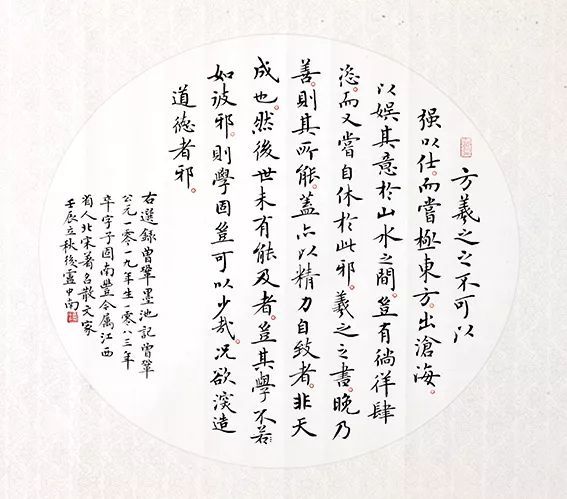 方羲之之不可以
强以仕。而嘗極東方。出滄海。
以娱其意於山水之間。豈有徜徉肆
恣。而又嘗自休於此邪。羲之之書。晚乃
善。則其所能。蓋亦以精力自致者。非天
成也。然後世未有能及者。豈其學不若
如彼邪。則學固豈可以少哉。况欲深造
道德者邪。
右選録曾鞏墨池記曾鞏
公元一零一九年生一零八三年
卒字子固南豐今属江西
省人北宋著名散文家
壬辰立秋後盧中南